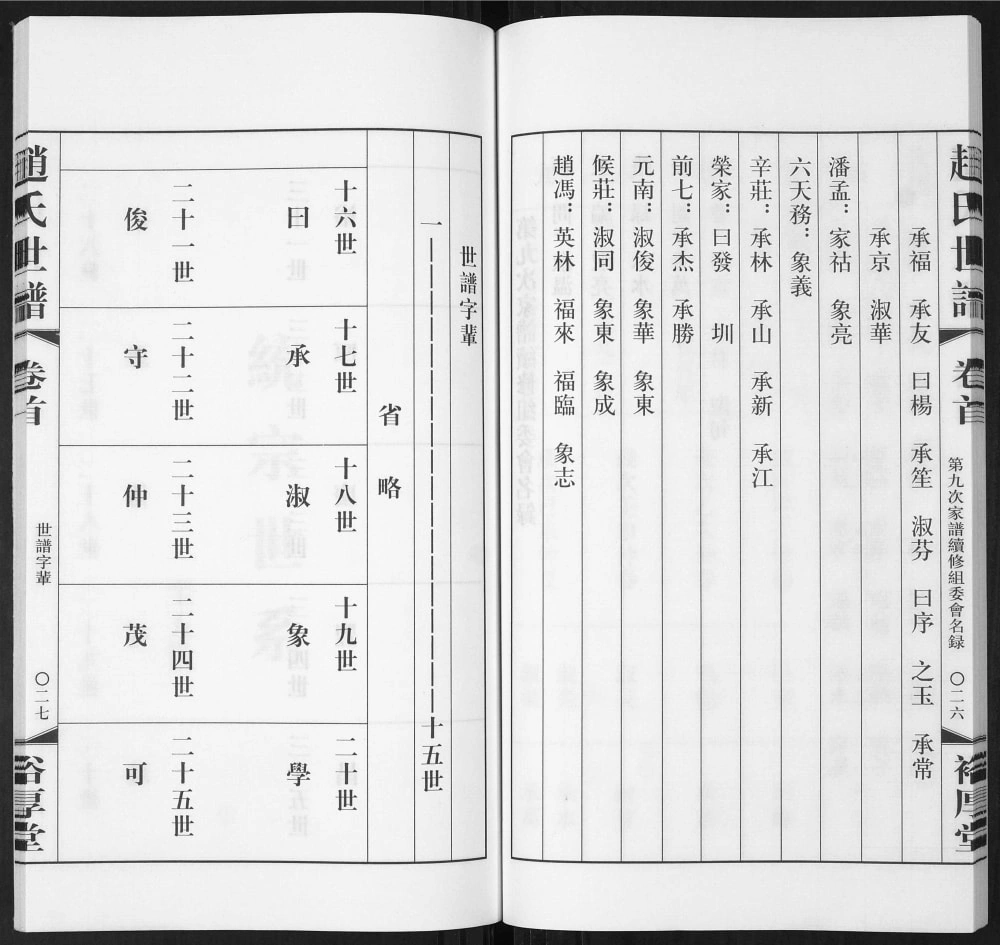 趙氏世譜 卷首 第九次家譜續修組委會名録 〇二六 裕厚堂
承福 承友 曰楊 承笙 淑芬 曰序 之玉 承常
承京 淑華
潘孟：家祜 象亮
六天務：象義
辛莊：承林 承山 承新 承江
榮家：曰發 圳
前七：承杰 承勝
元南：淑俊 象華 象東
候莊：淑同 象東 象成
趙馮：英林 福來 福臨 象志
世譜字輩
一——————————————十五世
省略
十六世 十七世 十八世 十九世 二十世
曰 承 淑 象 學
二十一世 二十二世 二十三世 二十四世 二十五世
俊 守 仲 茂 可
趙氏世譜 卷首 世譜字輩 〇二七 裕厚堂